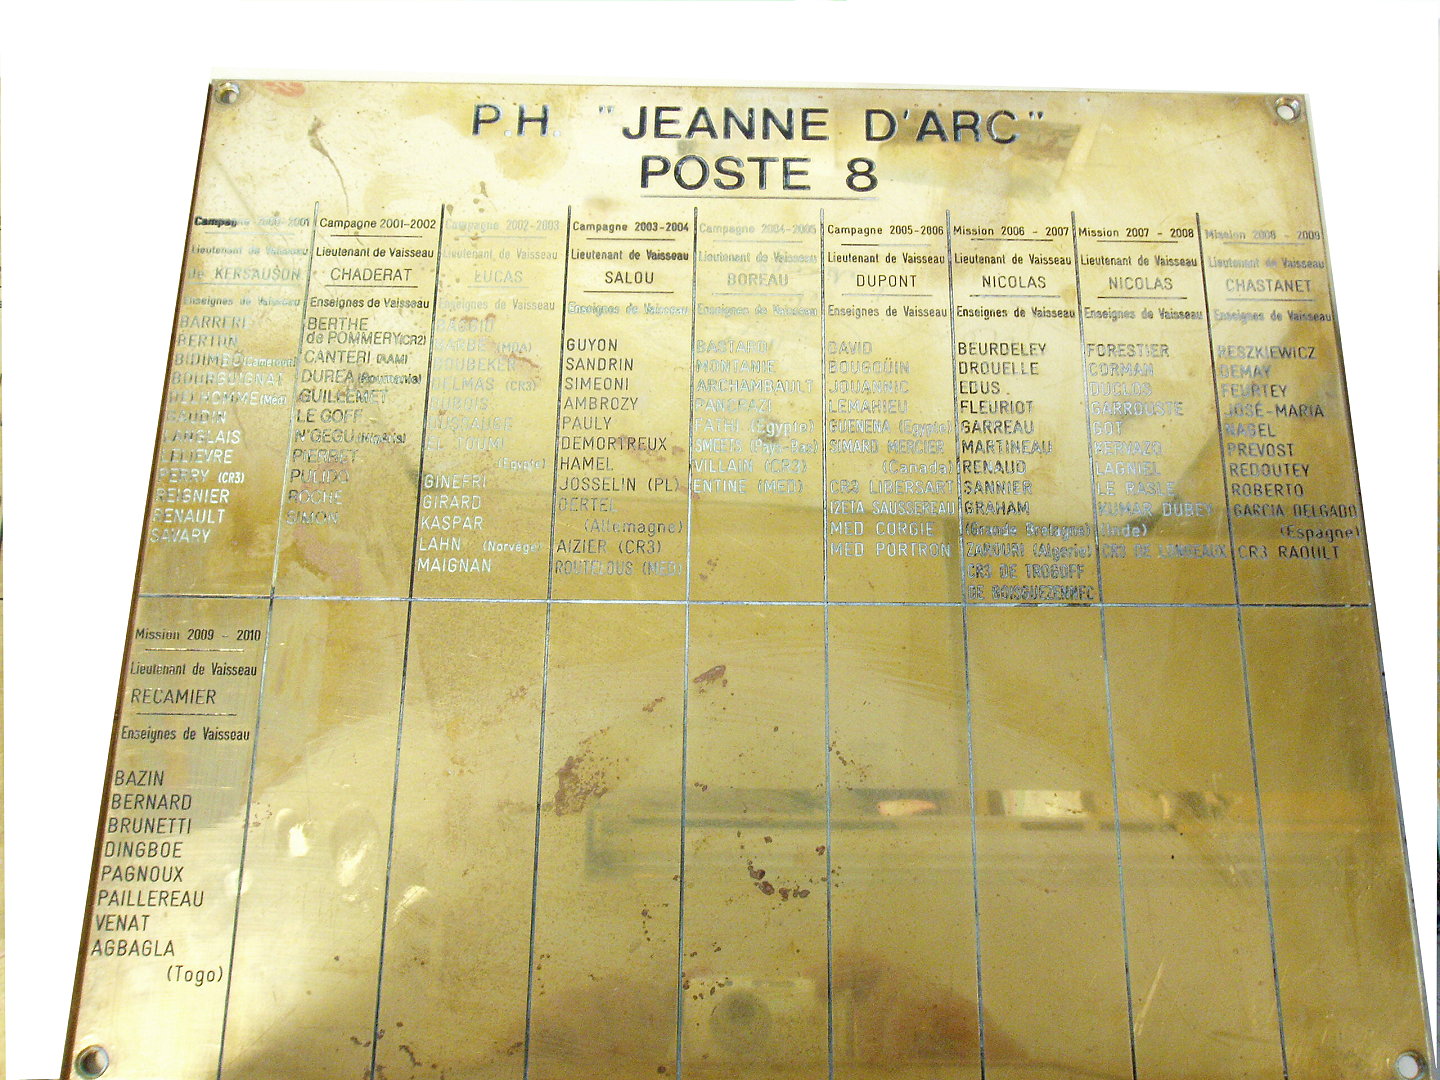 P.H. "JEANNE D'ARC"
POSTE 8
Campagne 2000-2001
Lieutenant de Vaisseau
de KERSAUSON
Enseignes de Vaisseau
BARRERI
BERTON
BIDIMBO (Cameroun)
BOURGUIGNAT
DELHOMME (Med)
GAUDIN
LANGLAIS
LELIEVRE
PERRY (CR3)
REIGNIER
RENAULT
SAVARY
Campagne 2001-2002
Lieutenant de Vaisseau
CHADERAT
Enseignes de Vaisseau
BERTHE
de POMMERY (CR2)
CANTERI (AAM)
DUREA (Roumanie)
GUILLEMET
LE GOFF
N'GEGU
PIERRET
PULIDO
ROCHE
SIMON
Campagne 2002-2003
Lieutenant de Vaisseau
LUCAS
Enseignes de Vaisseau
BAGGIO
BARBE (MDA)
BOUBEKER
DELMAS (CR3)
DUBOIS
DUSSAUGE
EL TOUMI
(Egypte)
GINEFRI
GIRARD
KASPAR
LAHN (Norvège)
MAIGNAN
Campagne 2003-2004
Lieutenant de Vaisseau
SALOU
Enseignes de Vaisseau
GUYON
SANDRIN
SIMEONI
AMBROZY
PAULY
DEMORTREUX
HAMEL
JOSSELIN (PL)
OERTEL
(Allemagne)
AIZIER (CR3)
ROUTELOUS (MED)
Campagne 2004-2005
Lieutenant de Vaisseau
BOREAU
Enseignes de Vaisseau
BASTARD
MONTANIE
ARCHAMBAULT
PANCRAZI
FATHI (Egypte)
SMEETS (Pays-Bas)
VILLAIN (CR3)
ENTINE (MED)
Campagne 2005-2006
Lieutenant de Vaisseau
DUPONT
Enseignes de Vaisseau
DAVID
BOUGOÜIN
JOUANNIC
LEMAHIEU
GUENENA (Egypte)
SIMARD MERCIER
(Canada)
CR3 LIBERSART
IZETA SAUSSEREAU
MED CORGIE
MED PORTRON
Mission 2006 - 2007
Lieutenant de Vaisseau
NICOLAS
Enseignes de Vaisseau
BEURDELEY
DROUELLE
EDUS
FLEURIOT
GARREAU
MARTINEAU
RENAUD
SANNIER
GRAHAM
(Grande Bretagne)
ZANOURI (Algerie)
CR3 DE TROGOFF
DE BOISGUEZENNEC
Mission 2007 - 2008
Lieutenant de Vaisseau
NICOLAS
Enseignes de Vaisseau
FORESTIER
CORMAN
DUCLOS
GARROUSTE
GOT
KERVAZO
LAGNIEL
LE RASLE
KUMAR DUBEY
(Inde)
CR3 DE LOMPEAUX
Mission 2008 - 2009
Lieutenant de Vaisseau
CHASTANET
Enseignes de Vaisseau
RESZKIEWICZ
DEMAY
FEURTEY
JOSÉ-MARIA
NABEL
PREVOST
REDOUTEY
ROBERTO
GARCIA DELGADO
(Espagne)
CR3 RAOULT
Mission 2009 - 2010
Lieutenant de Vaisseau
RECAMIER
Enseignes de Vaisseau
BAZIN
BERNARD
BRUNETTI
DINGBOE
PAGNOUX
PAILLEREAU
VENAT
AGBAGLA
(Togo)